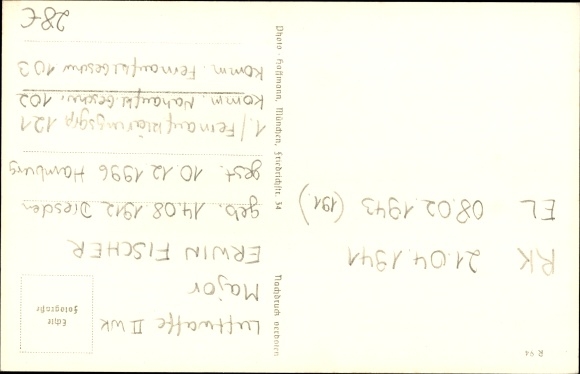 R 94
RK 21.04.1941
EL 08.02.1943 (191.)
Photo - Hoffmann, München, Friedrichstr. 34
Nachdruck verboten
Echte
Fotografie
Luftwaffe II WK
Major
ERWIN FISCHER
geb. 14.08.1912 Dresden
gest. 10.12.1996 Hamburg
1./Fernaufklärungsgrp 121
Komm. Nahaufkl.Geschw. 102
Komm. Fernaufkl.Geschw 103
28€